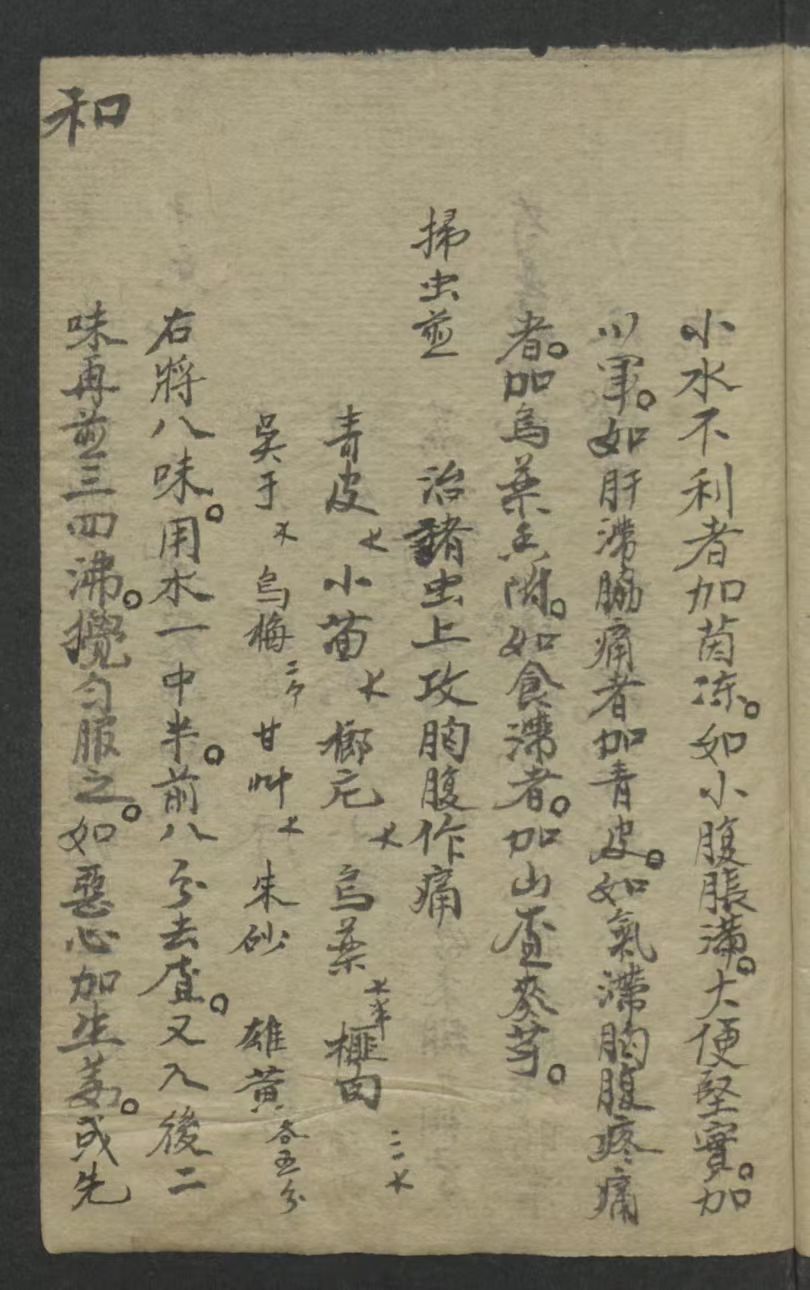 小水不利者加茵陈。如小腹脹滿。大便堅實。加
川軍。如肝滯脇痛者加青皮。如氣滯胸腹疼痛
者。加烏藥香附。如食滯者。加山查麥芽。
掃虫煎　治諸虫上攻胸腹作痛
青皮　小茴　榔　烏藥　榧肉
吳于　烏梅二个　甘艸　朱砂　雄黃各五分
右將八味。用水一中半。前八分去查。又入後二
味再煎三四沸。攪匀服之。如惡心加生姜。或先
和